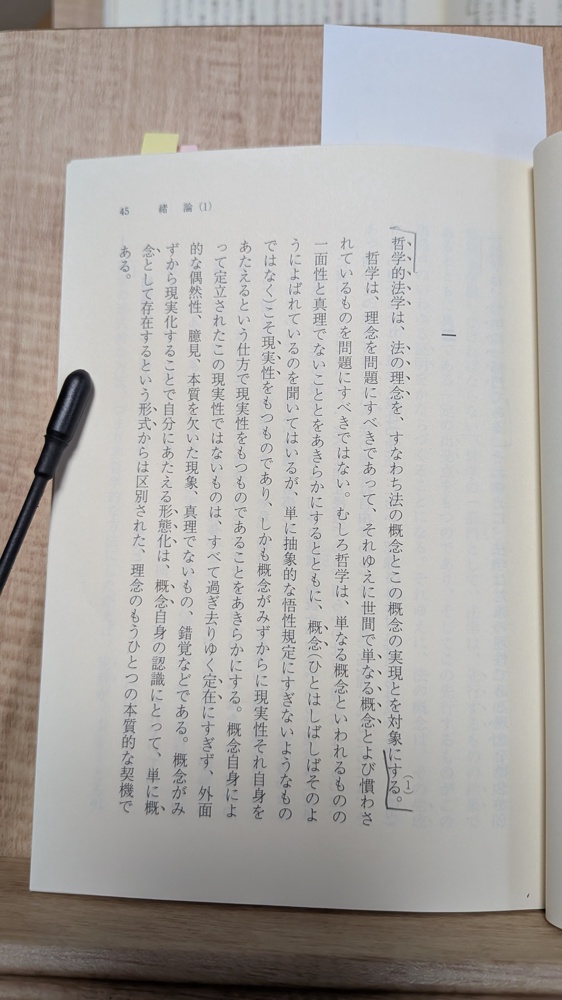 45 緒論(1)
一
哲学的法学は、法の理念を、すなわち法の概念とこの概念の実現とを対象にする。(1)
哲学は、理念を問題にすべきであって、それゆえに世間で単なる概念とよび慣わさ
れているものを問題にすべきではない。むしろ哲学は、単なる概念といわれるものの
一面性と真理でないこととをあきらかにするとともに、概念(ひとはしばしばそのよ
うによばれているのを聞いてはいるが、単に抽象的な悟性規定にすぎないようなもの
ではなく)こそ現実性をもつものであり、しかも概念がみずからに現実性それ自身を
あたえるという仕方で現実性をもつものであることをあきらかにする。概念自身によ
って定立されたこの現実性ではないものは、すべて過ぎ去りゆく定在にすぎず、外面
的な偶然性、臆見、本質を欠いた現象、真理でないもの、錯覚などである。概念がみ
ずから現実化することで自分にあたえる形態化は、概念自身の認識にとって、単に概
念として存在するという形式からは区別された、理念のもうひとつの本質的な契機で
ある。